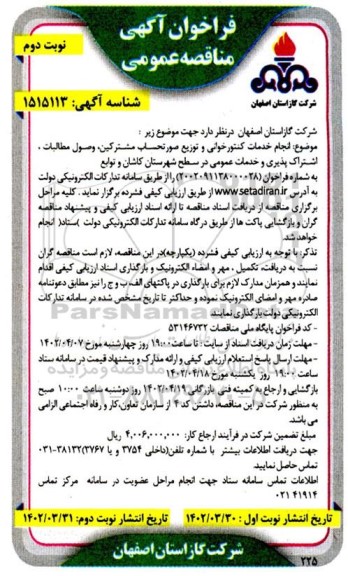 فراخوان آگهی
مناقصه عمومی
نوبت دوم
شرکت گاز استان اصفهان
شناسه آگهی: ۱۵۱۵۱۱۳
شرکت گاز استان اصفهان درنظر دارد جهت موضوع زیر :
موضوع: انجام خدمات کنتورخوانی و توزیع صورتحساب مشترکین، وصول مطالبات ،
اشتراک پذیری و خدمات عمومی در سطح شهرستان کاشان و توابع
به شماره فراخوان (۲۰۰۲۰۹۱۱۳۸۰۰۰۰۲۸) را از طریق سامانه تدارکات الکترونیکی دولت
به آدرس www.setadiran.ir از طریق ارزیابی کیفی فشرده برگزار نماید . کلیه مراحل
برگزاری مناقصه از دریافت اسناد مناقصه تا ارائه اسناد ارزیابی کیفی و پیشنهاد مناقصه
گران و بازگشایی پاکت ها از طریق درگاه سامانه تدارکات الکترونیکی دولت )ستاد( انجام
خواهد شد.
تذکر: با توجه به ارزیابی کیفی فشرده (یکپارچه)در این مناقصه، لازم است مناقصه گران
نسبت به دریافت، تکمیل ، مهر و امضاء الکترونیک و بارگذاری اسناد ارزیابی کیفی اقدام
نمایند و همزمان مدارک لازم برای بارگذاری در پاکتهای الف، ب و ج را نیز مطابق دعوتنامه
صادره مهر و امضای الکترونیک نموده و حداکثر تا تاریخ مشخص شده در سامانه تدارکات
الکترونیکی دولت بارگذاری نمایند.
- کد فراخوان پایگاه ملی مناقصات ۵۳۱۴۶۷۳۲
- مهلت زمان دریافت اسناد از سایت : تا ساعت ۱۹:۰۰ روز چهارشنبه مورخ ۱۴۰۲/۰۴/۰۷
- مهلت ارسال پاسخ استعلام ارزیابی کیفی و ارائه مدارک و پیشنهاد قیمت در سامانه ستاد
ساعت ۱۹:۰۰ روز یکشنبه مورخ ۱۴۰۲/۰۴/۱۸
بازگشایی و ارجاع به کمیته فنی بازرگانی ۱۴۰۲/۰۴/۱۹ روز دوشنبه ساعت ۱۰:۰۰ صبح
به منظور شرکت در این مناقصه، داشتن کد ۴ از سازمان تعاون، کار و رفاه اجتماعی الزامی
می باشد.
مبلغ تضمین شرکت در فرآیند ارجاع کار: ۴,۰۰۶,۰۰۰,۰۰۰ ریال
جهت دریافت اطلاعات بیشتر با شماره تلفن(داخلی ۳۷۵۴ و یا ۲۷۶۷)۰۳۱-۳۸۱۳۲
تماس حاصل نمایید.
اطلاعات تماس سامانه ستاد جهت انجام مراحل عضویت در سامانه مرکز تماس
۰۲۱ ۴۱۹۱۴
تاریخ انتشار نوبت اول : ۱۴۰۲/۰۳/۳۰
تاریخ انتشار نوبت دوم: ۱۴۰۲/۰۳/۳۱
شرکت گاز استان اصفهان
۲۲۵